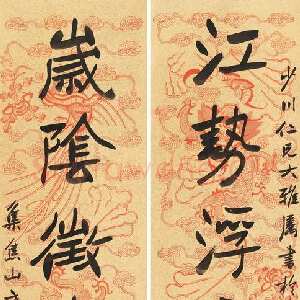 少川仁兄大雅属書於
江勢浮
歲陰徵
集焦山